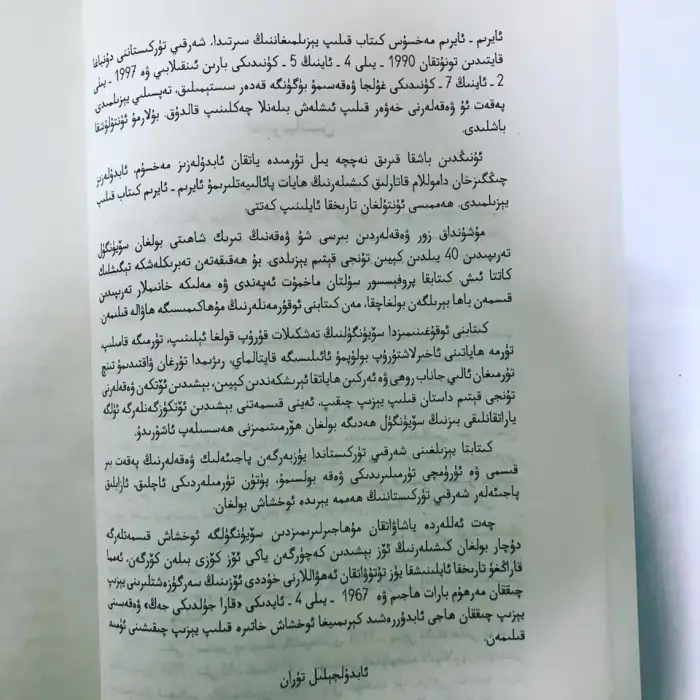 ئايرىم ـ ئايرىم مەخسۇس كىتاب قىلىپ يېزىلمىغاننىڭ سىرتىدا، شەرقىي تۈركىستاننى دۇنياغا
قايتىدىن تونۇتقان 1990 ـ يىلى 4 ـ ئاينىڭ 5 ـ كۈنىدىكى بارىن ئىنقىلابىي ۋە 1997 ـ يىلى
2 ـ ئاينىڭ 7 ـ كۈنىدىكى غۇلجا ۋەقەسىمۇ بۈگۈنگە قەدەر سىستېمىلىق، تەپسىلىي يېزىلمىدى.
پەقەت ئۇ ۋەقەلەرنى خەۋەر قىلىپ ئىشلەش بىلەنلا چەكلىنىپ قالدۇق. بۇلارمۇ ئۇنتۇلۇشقا
باشلىدى.
ئۇنىڭدىن باشقا قىرىق نەچچە يىل تۈرمىدە ياتقان ئابدۇلەزىز مەخسۇم، ئابدۇلەزىز
چىڭگىزخان داموللام قاتارلىق كىشىلەرنىڭ ھايات پائالىيەتلىرىمۇ ئايرىم ـ ئايرىم كىتاب قىلىپ
يېزىلمىدى. ھەممىسى ئۇنتۇلغان تارىخقا ئايلىنىپ كەتتى.
مۇشۇنداق زور ۋەقەلەردىن بىرسى شۇ ۋەقەنىڭ تىرىك شاھىتى بولغان سۆيۈنگۈل
تەرىپىدىن 40 يىلدىن كېيىن تۇنجى قېتىم يېزىلدى. بۇ ھەقىقەتەن تەبرىكلەشكە تېگىشلىك
كاتتا ئىش. كىتابقا پروفېسسور سۇلتان ماخمۇت ئەپەندى ۋە مەلىكە خانىملار تەرىپىدىن
قىسمەن باھا بېرىلگەن بولغاچقا، مەن كىتابنى ئوقۇرمەنلەرنىڭ مۇھاكىمىسىگە ھاۋالە قىلىمەن
كىتابنى ئوقۇغىنىمىزدا سۆيۈنگۈلنىڭ تەشكىلات قۇرۇپ قولغا ئېلىنىپ، تۈرمىگە قامىلىپ
تۈرمە ھاياتىنى ئاخىرلاشتۇرۇپ بولۇپمۇ ئائىلىسىگە قايتالماي، رېژىمدا تۇرغان ۋاقتىدىمۇ تىنچ
تۇرمىغان ئالىي جاناب روھى ۋە ئەركىن ھاياتقا ئېرىشكەندىن كېيىن، بېشىدىن ئۆتكەن ۋەقەلەرنى
تۇنجى قېتىم داستان قىلىپ يېزىپ چىقىپ، ئەينى قىسمەتنى بېشىدىن ئۆتكۈزگەنلەرگە ئۈلگە
ياراتقانلىقى بىزنىڭ سۆيۈنگۈل ھەدىگە بولغان ھۆرمىتىمىزنى ھەسسىلەپ ئاشۇرىدۇ.
كىتابتا يېزىلغىنى شەرقىي تۈركىستاندا يۈزبەرگەن پاجىئەلىك ۋەقەلەرنىڭ پەقەت بىر
قىسمى ۋە ئۈرۈمچى تۈرمىلىرىدىكى ۋەقە بولسىمۇ، پۈتۈن تۈرمىلەردىكى ئاچلىق، ئازابلىق
پاجىئەلەر شەرقىي تۈركىستاننىڭ ھەممە يېرىدە ئوخشاش بولغان.
چەت ئەللەردە ياشاۋاتقان مۇھاجىرلىرىمىزدىن سۆيۈنگۈلگە ئوخشاش قىسمەتلەرگە
دۇچار بولغان كىشىلەرنىڭ ئۆز بېشىدىن كەچۈرگەن ياكى ئۆز كۆزى بىلەن كۆرگەن، ئەمما
قاراڭغۇ تارىخقا ئايلىنىشقا يۈز تۇتۇۋاتقان ئەھۋاللارنى خۇددى ئۆزىنىڭ سەرگۈزەشتلىرىنى يېزىپ
چىققان مەرھۇم بارات ھاجىم ۋە 1967 ـ يىلى 4 ـ ئايدىكى «قارا جۇلدىكى جەڭ» ۋەقەسىنى
يېزىپ چىققان ھاجى ئابدۇررەشىد كېرىمىيغا ئوخشاش خاتىرە قىلىپ يېزىپ چىقىشىنى ئۈمىد
قىلىمەن.
ئابدۇلجېلىل تۇران